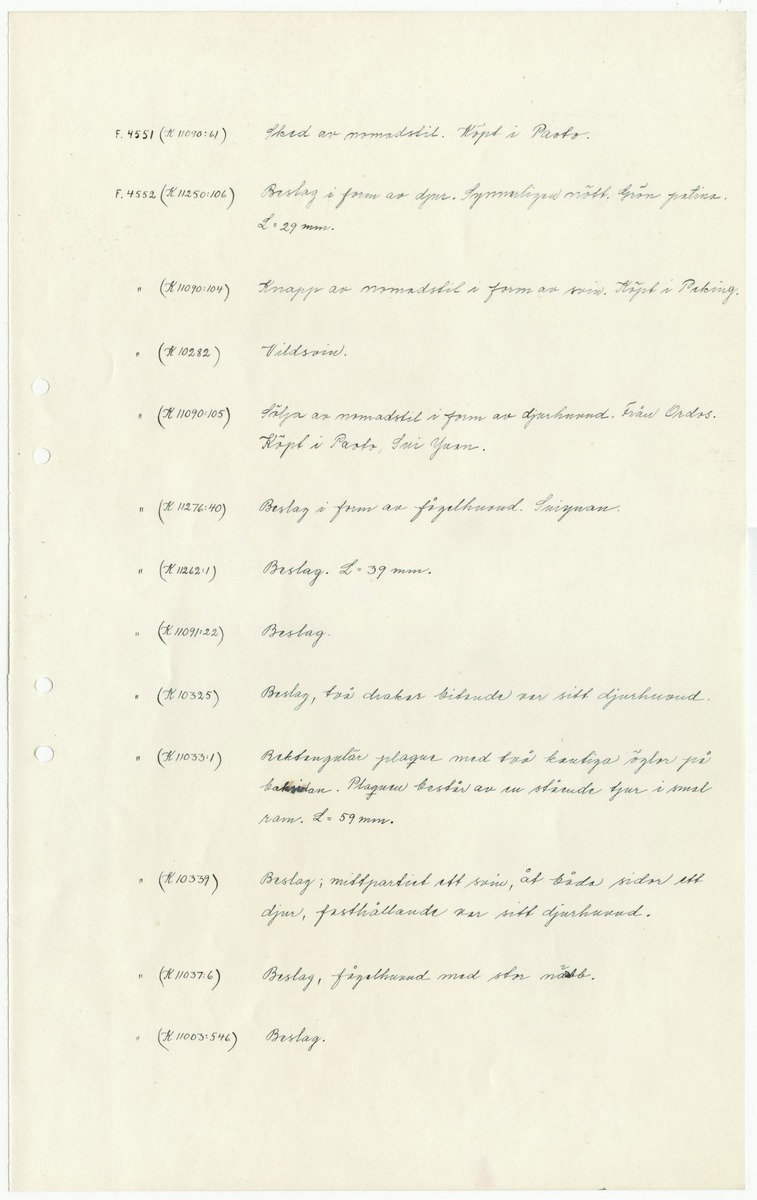 F. 4551 (K 11090:61) Sked av nomadstil. Köpt i Paoto.
F. 4552 (K 11250:106) Beslag i form av djur. Synnerligen nött. Grön patina.
L = 29 mm.
" (K 11090:104) Knapp av nomadstil i form av svin. Köpt i Peking.
" (K 10282) Vildsvin.
" (K 11090:105) Sölja av nomadstil i form av djurhuvud. Från Ordos.
Köpt i Paoto, Sui Yuan.
" (K 11276:40) Beslag i form av fågelhuvud. Suiyuan.
" (K 11262:1) Beslag. L = 39 mm.
" (K 11091:22) Beslag.
" (K 10325) Beslag, två drakar bitande var sitt djurhuvud.
" (K 11033:1) Rektangulär plaque med två kantiga öglor på
baksidan. Plaquen består av en stående tjur i smal
ram. L = 59 mm.
" (K 10339) Beslag; mittpartiet ett svin, åt båda sidor ett
djur, fasthållande var sitt djurhuvud.
" (K 11037:6) Beslag, fågelhuvud med stor näbb.
" (K 11003:546) Beslag.